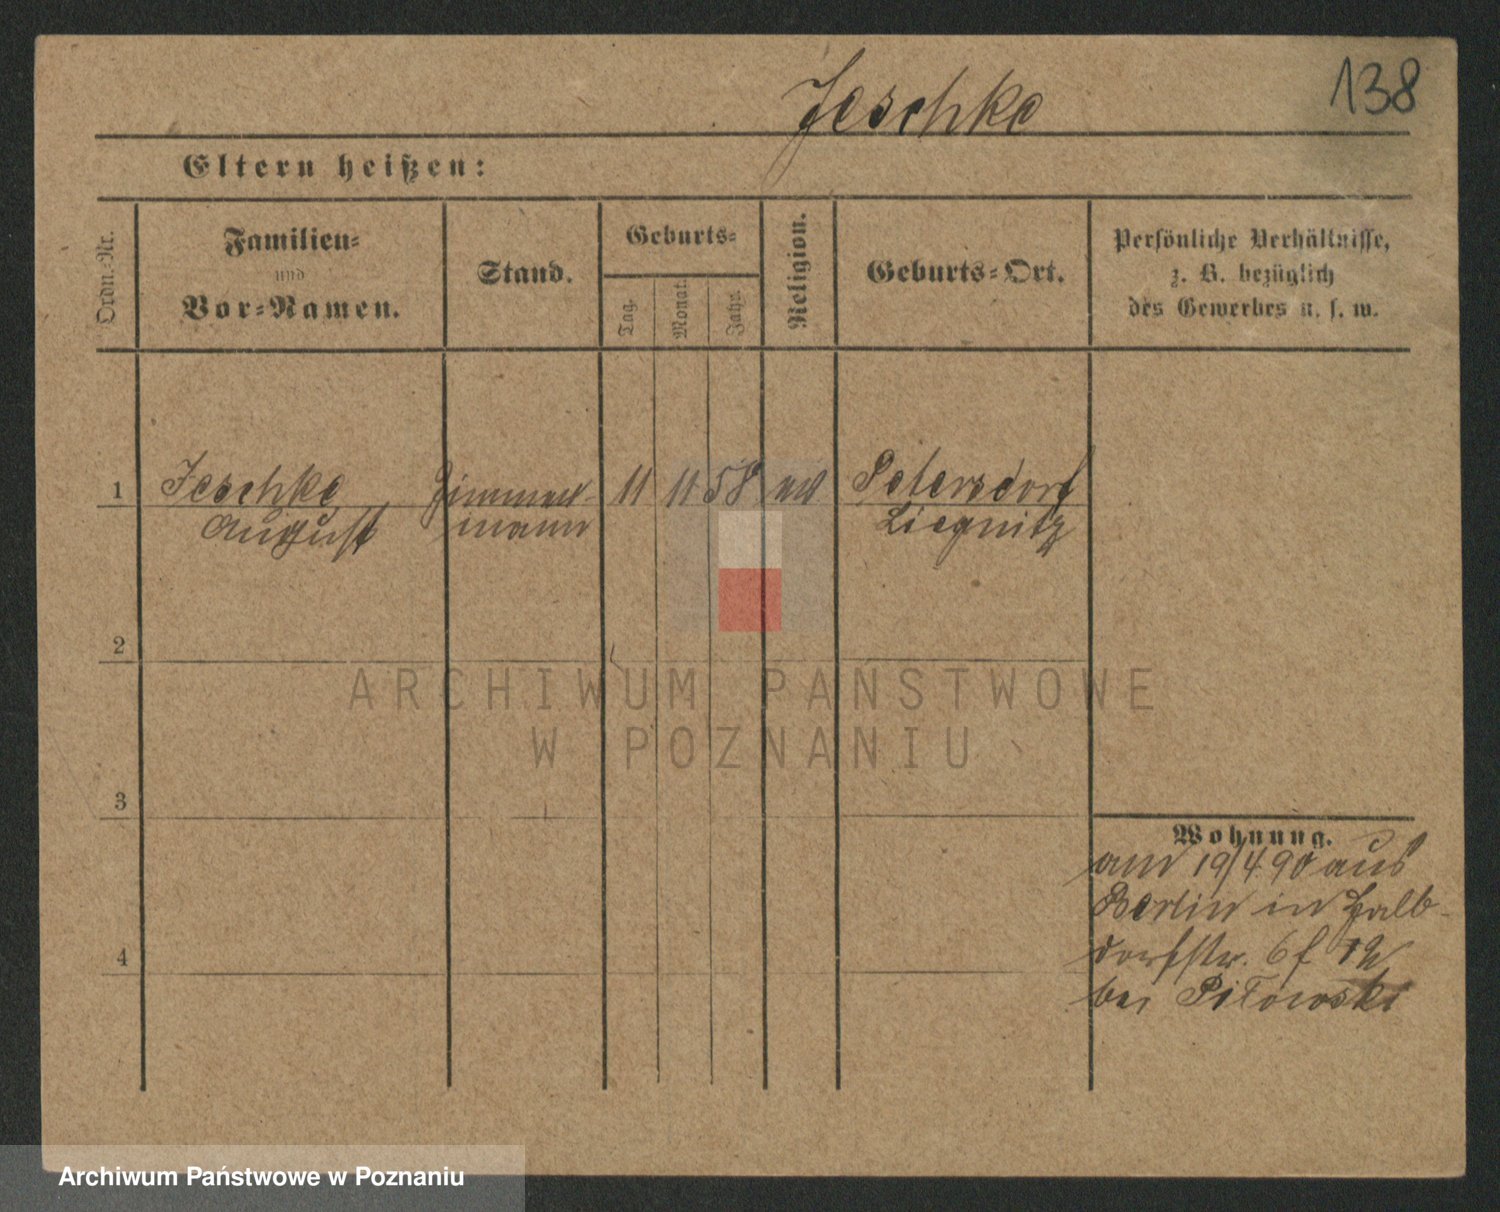 138
Jeschke
Eltern heißen:
Ordn.-Nr.
Familien-
und
Vor-Namen.
Stand.
Geburts-
Tag.
Monat.
Jahr.
Religion.
Geburts-Ort.
Persönliche Verhältnisse,
z. B. bezüglich
des Gewerbes u. s. w.
1 Jeschke Zimmer- 11 11 58 ev Petersdorf
August mann Liegnitz
2
3
4
Wohnung.
am 19/4 90 aus
Berlin in Halb-
dorfstr. 6
bei Pitowski
ARCHIWUM PAŃSTWOWE
W POZNANIU
Archiwum Państwowe w Poznaniu